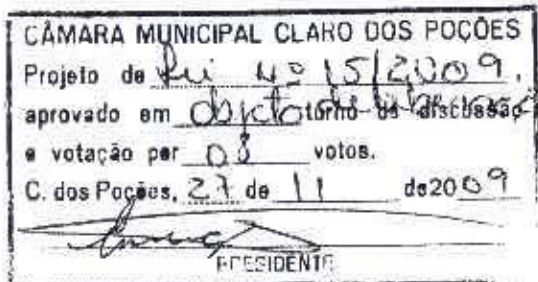 CÂMARA MUNICIPAL CLARO DOS POÇÕES
Projeto de Lei Nº 15/2009.
aprovado em turno de discussão
e votação por 08 votos.
C. dos Poções, 27 de 11 de 2009
PRESIDENTE